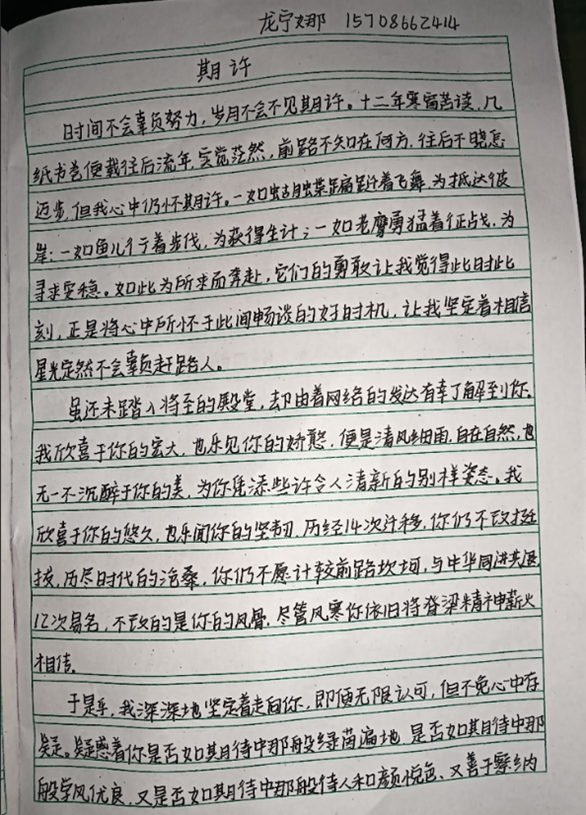 龙宁娜 15708662414
期许
时间不会辜负努力，岁月不会不见期许。十二年寒窗苦读，几
纸书卷便载往后流年，突觉茫然，前路不知在何方，往后不晓怎
迈步，但我心中仍怀期许。一如蝴蝶蹁跹着飞舞，为抵达彼
岸；一如鱼儿行着步伐，为获得生计；一如老鹰勇猛着征战，为
寻求安稳。如此为所求而奔赴，它们的勇敢让我觉得此时此
刻，正是将心中所怀于此间畅谈的好时机，让我坚定着相信
星光定然不会辜负赶路人。
虽还未踏入将至的殿堂，却由着网络的发达有幸了解到你。
我欣喜于你的宏大，也乐见你的娇憨，便是清风细雨，自在自然，也
无一不沉醉于你的美，为你凭添些许令人清新的别样姿态。我
欣喜于你的悠久，也乐闻你的坚韧，历经14次迁移，你仍不改挺
拔，历尽时代的沧桑，你仍不愿计较前路坎坷，与中华同进共退
12次易名，不改的是你的风骨，尽管风寒你依旧将脊梁精神薪火
相传。
于是乎，我深深地坚定着走向你，即便无限认可，但不免心中存
疑。疑惑着你是否如期待中那般绿茵遍地，是否如期待中那
般学风优良，又是否如期待中那般待人和颜悦色、又善于察纳